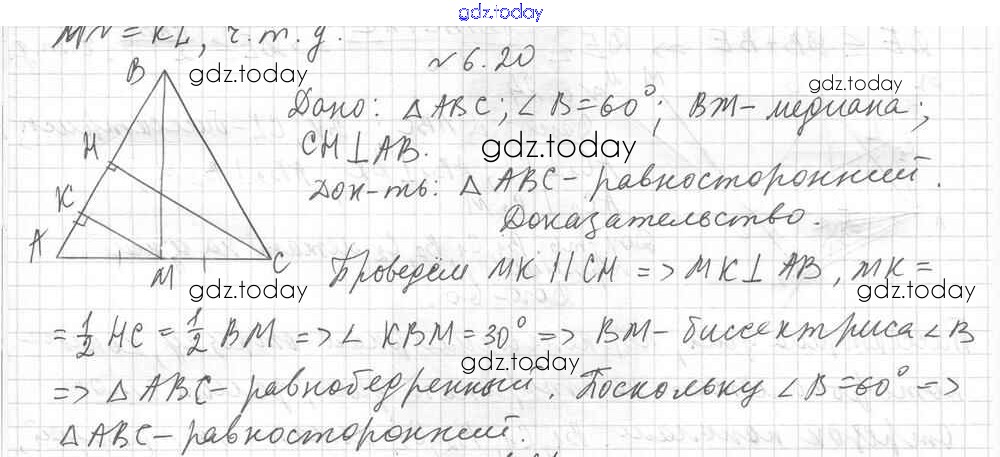 gdz.today
MN = KL, ч.т.д.
№ 6.20
B
gdz.today
gdz.today
Дано: △ ABC; ∠ B = 60°; BM - медиана;
H
CH ⊥ AB.
gdz.today
K
Док-ть: △ ABC - равносторонний.
A
Доказательство.
M
C
Проведём MK || CH => MK ⊥ AB, MK =
gdz.today
gdz.today
= 1/2 HC = 1/2 BM => ∠ KBM = 30° => BM - биссектриса ∠ B
gdz.today
=> △ ABC - равнобедренный. Поскольку ∠ B = 60° =>
△ ABC - равносторонний.
gdz.today